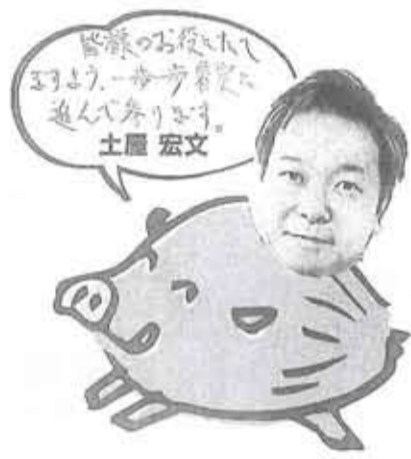 皆様のお役にたて
ますよう、一歩一歩着実に
進んで参ります。
土屋 宏文